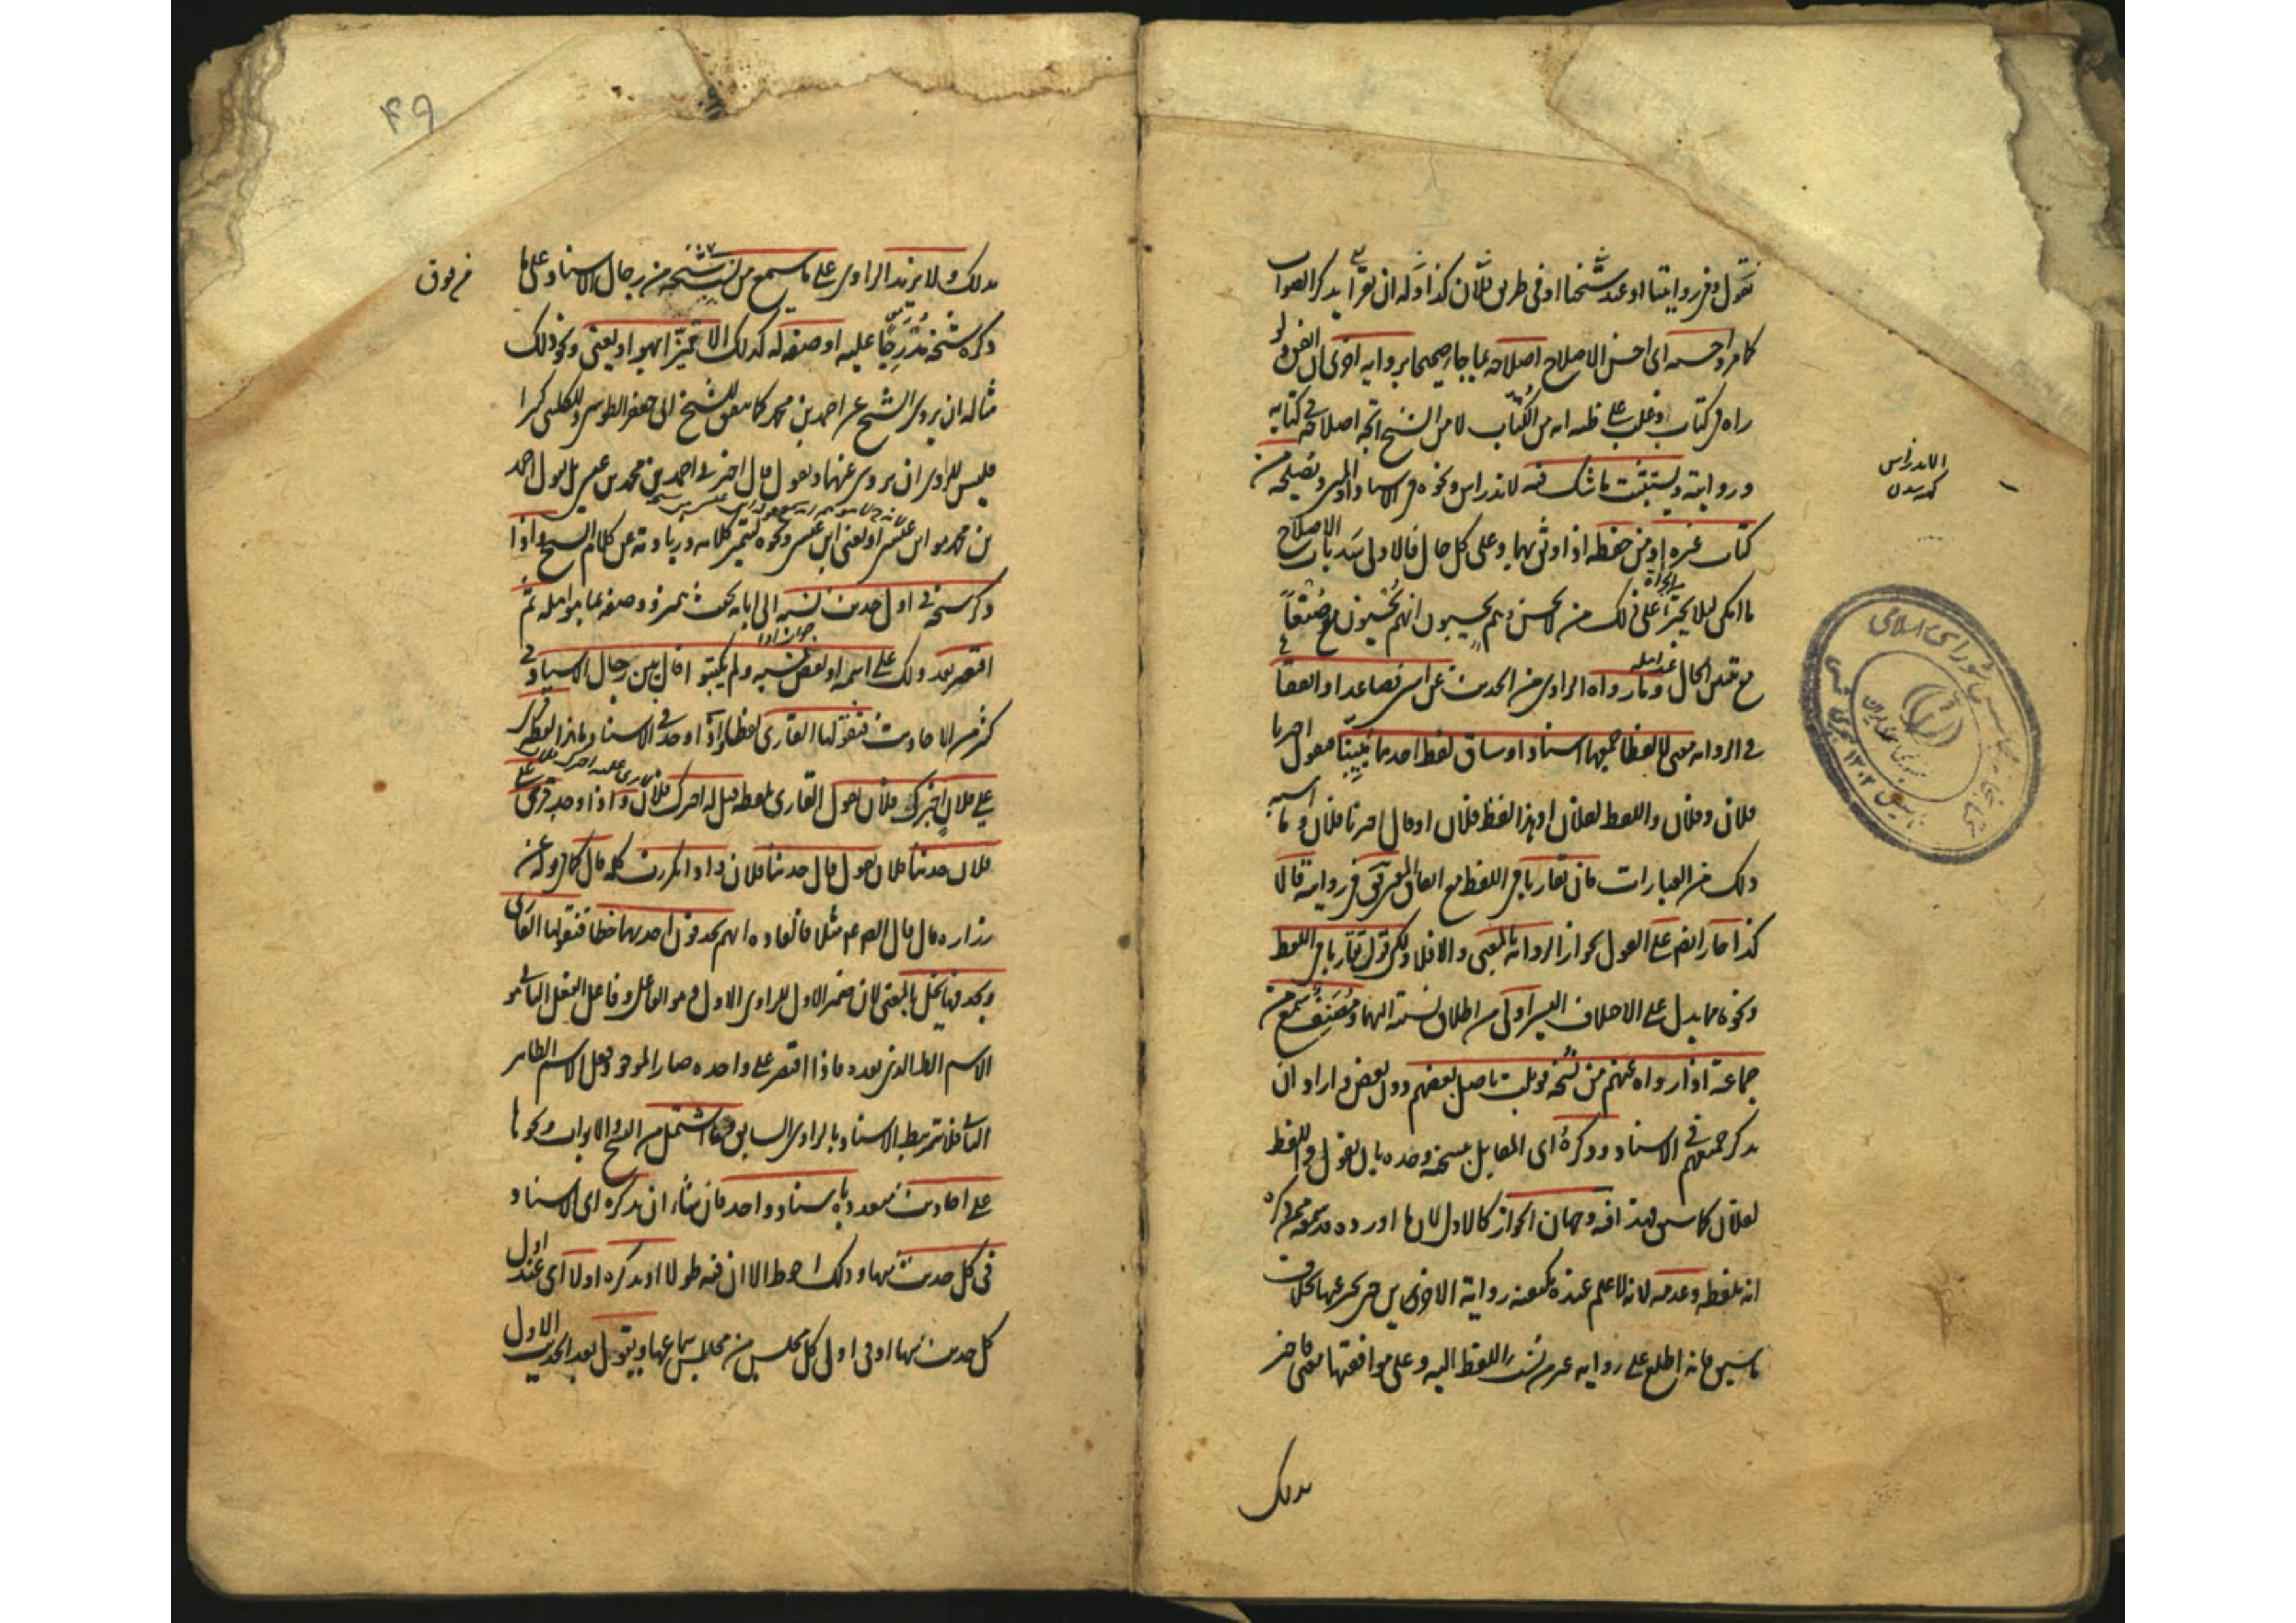 نقول وفي روايتنا او عند شيخنا او في طريق فلان كذا وله ان يقرأ يذكر الصواب
كما مر واحسنه اى احسن الاصلاح اصلاحه بما جاء صحيحا برواية اخرى ان اتفق ولو
راه في كتاب وغلب على ظنه انه من الكتاب لا من الشيخ اتجه اصلاحه في كتابه
وروايته ويستثبت ما شك فيه لاندراس ونحوه في الاسناد او المتن ويصلحه من
كتاب غيره او من حفظه اذا وثق بهما وعلى كل حال فالاولى سد باب الاصلاح
ما امكن لئلا يجترأ على ذلك من لا يحسن وهم يحسبون انهم يحسنون صنعا
الحال وما رواه الراوى من الحديث عن اثنين فصاعدا واتفقا
في الرواية معنى لا لفظا جمعهما اسنادا وساق لفظ احدهما مبينا فيقول اخبرنا
فلان وفلان واللفظ لفلان او هذا لفظ فلان او قال اخبرنا فلان وما اشبه
ذلك من العبارات فان تقاربا في اللفظ مع اتفاق المعنى في رواية قالا
كذا جاز ايضا على القول بجواز الرواية بالمعنى والا فلا ولكن قوله تقاربا في اللفظ
ونحوه مما يدل على الاختلاف اليسير اولى من اطلاق نسبته اليهما ومصنف سمع من
جماعة اذا رواه عنهم من نسخة قوبلت باصل بعضهم دون بعض واراد ان
يذكر جميعهم في الاسناد وذكره اى المقابل بنسخته وحده بان يقول واللفظ
لفلان كما سبق فهذا فيه وجهان الجواز كالاول لان ما اورده قد سمعه ممن ذكره
انه بلفظه وعدمه لانه لا علم عنده بكيفية رواية الاخرين حتى يخبر عنها بخلاف
ما سبق فانه اطلع على رواية غير من نسب اللفظ اليه وعلى موافقتها معنى فاخبر
بذلك
الاندراس
كهنه شدن
بذلك ولا يزيد الراوى على ما سمع من نسب شيخه من رجال الاسناد على ما
ذكره شيخه مدرجا عليه او صفة له كذلك الا مميزا بهو او يعنى ونحو ذلك
مثاله ان يروى الشيخ عن احمد بن محمد كما يتفق للشيخ ابى جعفر الطوسى وللكلينى كثيرا
فليس للراوى ان يروى عنهما ويقول قال اخبرنى احمد بن محمد بن عيسى بل يقول احمد
بن محمد هو ابن عيسى او يعنى ابن عيسى ونحوه ليتميز كلامه وزيادته عن كلام الشيخ واذا
ذكر شيخه في اول حديث نسبه الى ابائه بحيث يتميز ووصفه بما هو اهله ثم
اقتصر بعد ذلك على اسمه او بعض نسبه ولم يكتبوا قال بين رجال الاسناد في
كثير من الاحاديث فيقولها القارى لفظا واذا وجد في الاسناد ما هذا لفظه قرى
على فلان اخبرك فلان يقول القارى بلفظه قيل له اخبرك فلان واذا وجد قرى على
فلان حدثنا فلان يقول قال حدثنا فلان واذا تكررت كلمة قال كما في قوله عن
زراره قال قال الصم مثلا فالعادة انهم يحذفون احديهما خطا فيقولها القارى
وحذفها يخل بالمعنى لان ضمير الاول للراوى الاول وهو الفاعل وفاعل الفعل الثانى هو
الاسم الظاهر الذى بعده فاذا اقتصر على واحده صار الموجود فعل الاسم الظاهر
الثانى فلا يرتبط الاسناد بالراوى السابق وما اشتمل من النسخ والابواب ونحوها
على احاديث متعددة باسناد واحد فان شاء ان يذكره اى الاسناد
في كل حديث منها وذلك احوط الا ان فيه طولا او يذكره اولا اى عند اول
كل حديث منها او في اول كل مجلس من مجالس سماعها ويقول بعد الحديث الاول